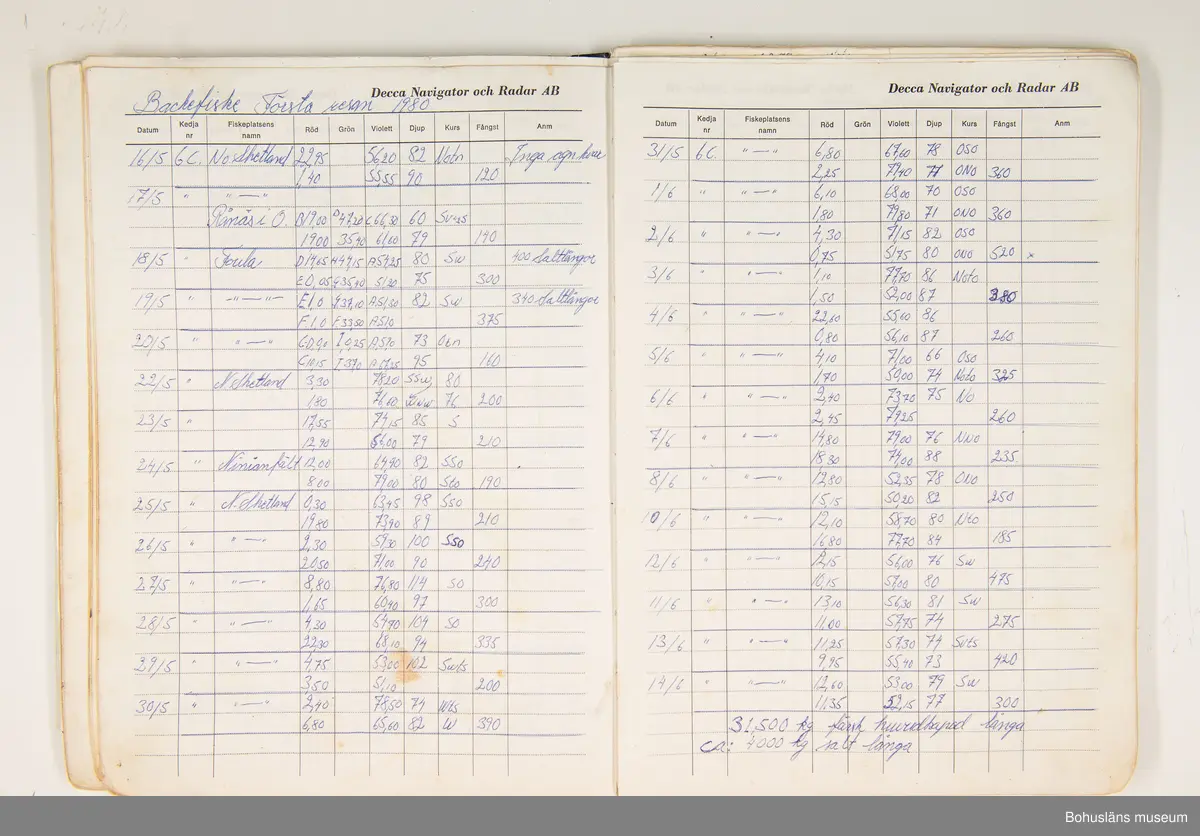 Decca Navigator och Radar AB
Backefiske Första resan 1980
Datum Kedja nr Fiskeplatsens namn Röd Grön Violett Djup Kurs Fångst Anm
16/5 6C. No Shetland 22,95 56,20 82 Noto Inga agn kvar
1,40 55,55 90 120
17/5 " " — "
i O. 60
19,00 35,40 61,60 79 140
18/5 " Foula 80 Sw 400 Saltlångor
75 300
19/5 " " — " E 1,0 82 Sw 340 Saltlångor
F 1,0 F 33,50 A 51,0 375
20/5 " " — " 73
95 160
22/5 " N. Shetland 3,30 78,20 SSW 80
1,80 76,60 76 200
23/5 " 17,55 74,15 85 S
12,90 56,00 79 210
24/5 " Ninianfält 12,00 64,90 82 SSO
8,00 79,00 80 Sto 190
25/5 " N. Shetland 0,30 63,45 98 SSO
19,80 73,90 89 210
26/5 " " — " 2,30 59,30 100 SSO
20,50 71,00 90 240
27/5 " " — " 8,80 76,80 114 SO
1,65 60,40 97 300
28/5 " " — " 4,30 54,90 104 SO
22,30 68,10 94 335
29/5 " " — " 4,75 53,00 102 Swts
3,50 51,10 200
30/5 " " — " 2,40 78,50 74 Wts
6,80 65,60 82 W 390
Decca Navigator och Radar AB
Datum Kedja nr Fiskeplatsens namn Röd Grön Violett Djup Kurs Fångst Anm
31/5 6C. " — " 6,80 67,60 78 OSO
2,25 79,40 77 ONO 360
1/6 " " — " 6,10 68,00 70 OSO
1,80 79,80 71 ONO 360
2/6 " " — " 4,30 71,15 82 OSO
0,75 51,75 80 ONO 520 x
3/6 " " — " 1,10 77,70 86 Noto
1,50 52,00 87 380
4/6 " " — " 22,60 55,60 86
0,80 56,10 87 260
5/6 " " — " 4,10 71,00 66 OSO
1,70 50,00 74 Noto 325
6/6 " " — " 2,40 73,70 75 No
2,45 79,25 260
7/6 " " — " 14,80 79,00 76 NNO
18,30 74,00 88 235
8/6 " " — " 12,80 52,35 78 ONO
15,15 50,20 82 250
10/6 " " — " 12,10 58,70 80 Nto
16,80 77,70 84 185
12/6 " " — " 12,15 56,00 76 Sw
10,15 57,00 80 475
11/6 " " — " 13,10 56,30 81 Sw
11,00 57,75 74 275
13/6 " " — " 11,25 57,30 74 Swts
9,95 55,40 73 420
14/6 " " — " 12,60 53,00 79 Sw
11,35 52,15 77 300
31,500 kg färsk huvudkapad långa
ca: 4000 kg salt långa
Bohusläns museum